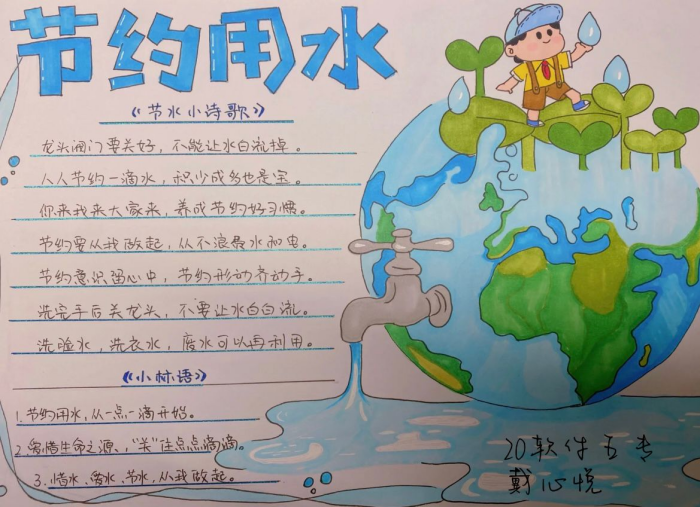 节约用水
《节水小诗歌》
龙头阀门要关好，不能让水白流掉。
人人节约一滴水，积少成多也是宝。
你来我来大家来，养成节约好习惯。
节约要从我做起，从不浪费水和电。
节约意识留心中，节约形动齐动手。
洗完手后关龙头，不要让水白白流。
洗脸水，洗衣水，废水可以再利用。
《小标语》
1.节约用水，从一点一滴开始。
2.爱惜生命之源、，"关"住点点滴滴。
3.惜水、爱水、节水，从我做起。
20软件五专
戴心悦